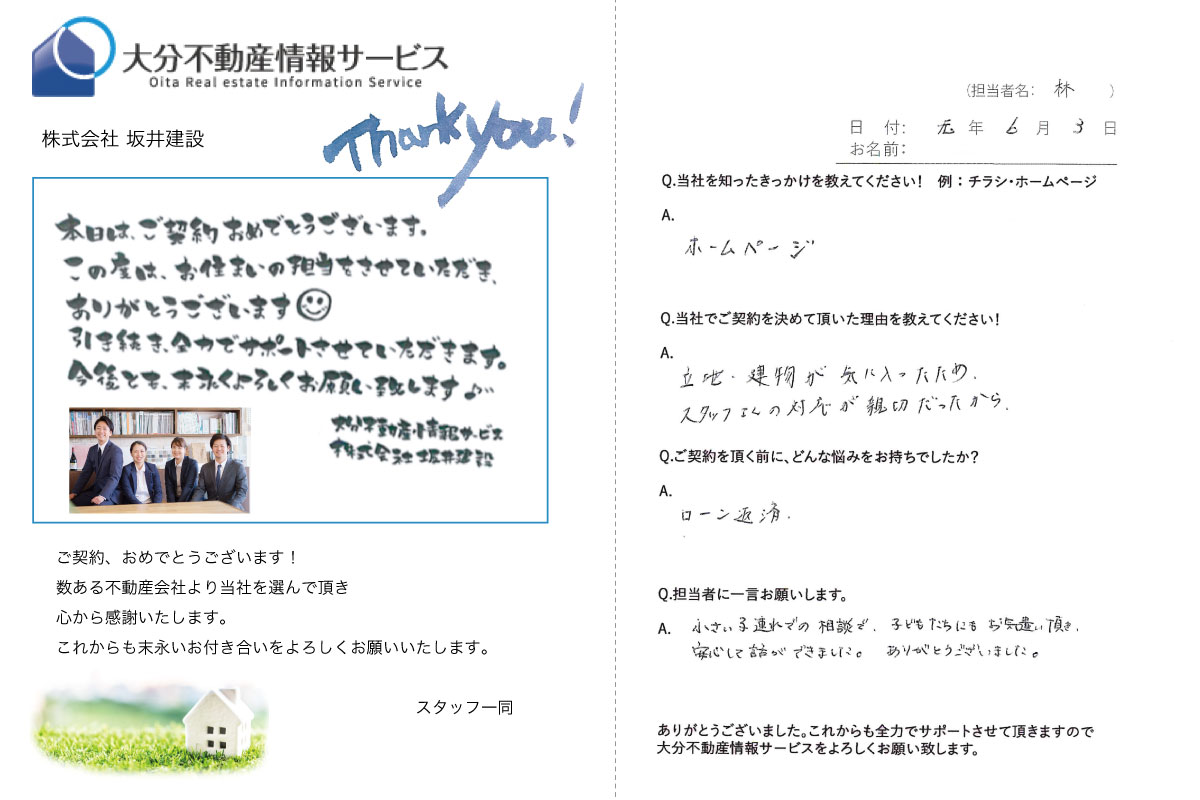 大分不動産情報サービス
Oita Real estate Information Service
Thank you!
株式会社 坂井建設
本日は、ご契約おめでとうございます。
この度は、お住まいの担当をさせていただき、
ありがとうございます
引き続き、全力でサポートさせていただきます。
今後とも、末永くよろしくお願い致します♪
大分不動産情報サービス
株式会社 坂井建設
ご契約、おめでとうございます！
数ある不動産会社より当社を選んで頂き
心から感謝いたします。
これからも末永いお付き合いをよろしくお願いいたします。
スタッフ一同
(担当者名: 林 )
日 付: 元 年 6 月 3 日
お名前:
Q.当社を知ったきっかけを教えてください! 例：チラシ・ホームページ
A.
ホームページ
Q.当社でご契約を決めて頂いた理由を教えてください!
A.
立地・建物が気に入ったため.
スタッフさんの対応が親切だったから.
Q.ご契約を頂く前に、どんな悩みをお持ちでしたか?
A.
ローン返済.
Q.担当者に一言お願いします。
A. 小さい子連れでの相談で、子どもたちにもお気遣い頂き、
安心して話ができました。 ありがとうございました。
ありがとうございました。これからも全力でサポートさせて頂きますので
大分不動産情報サービスをよろしくお願い致します。